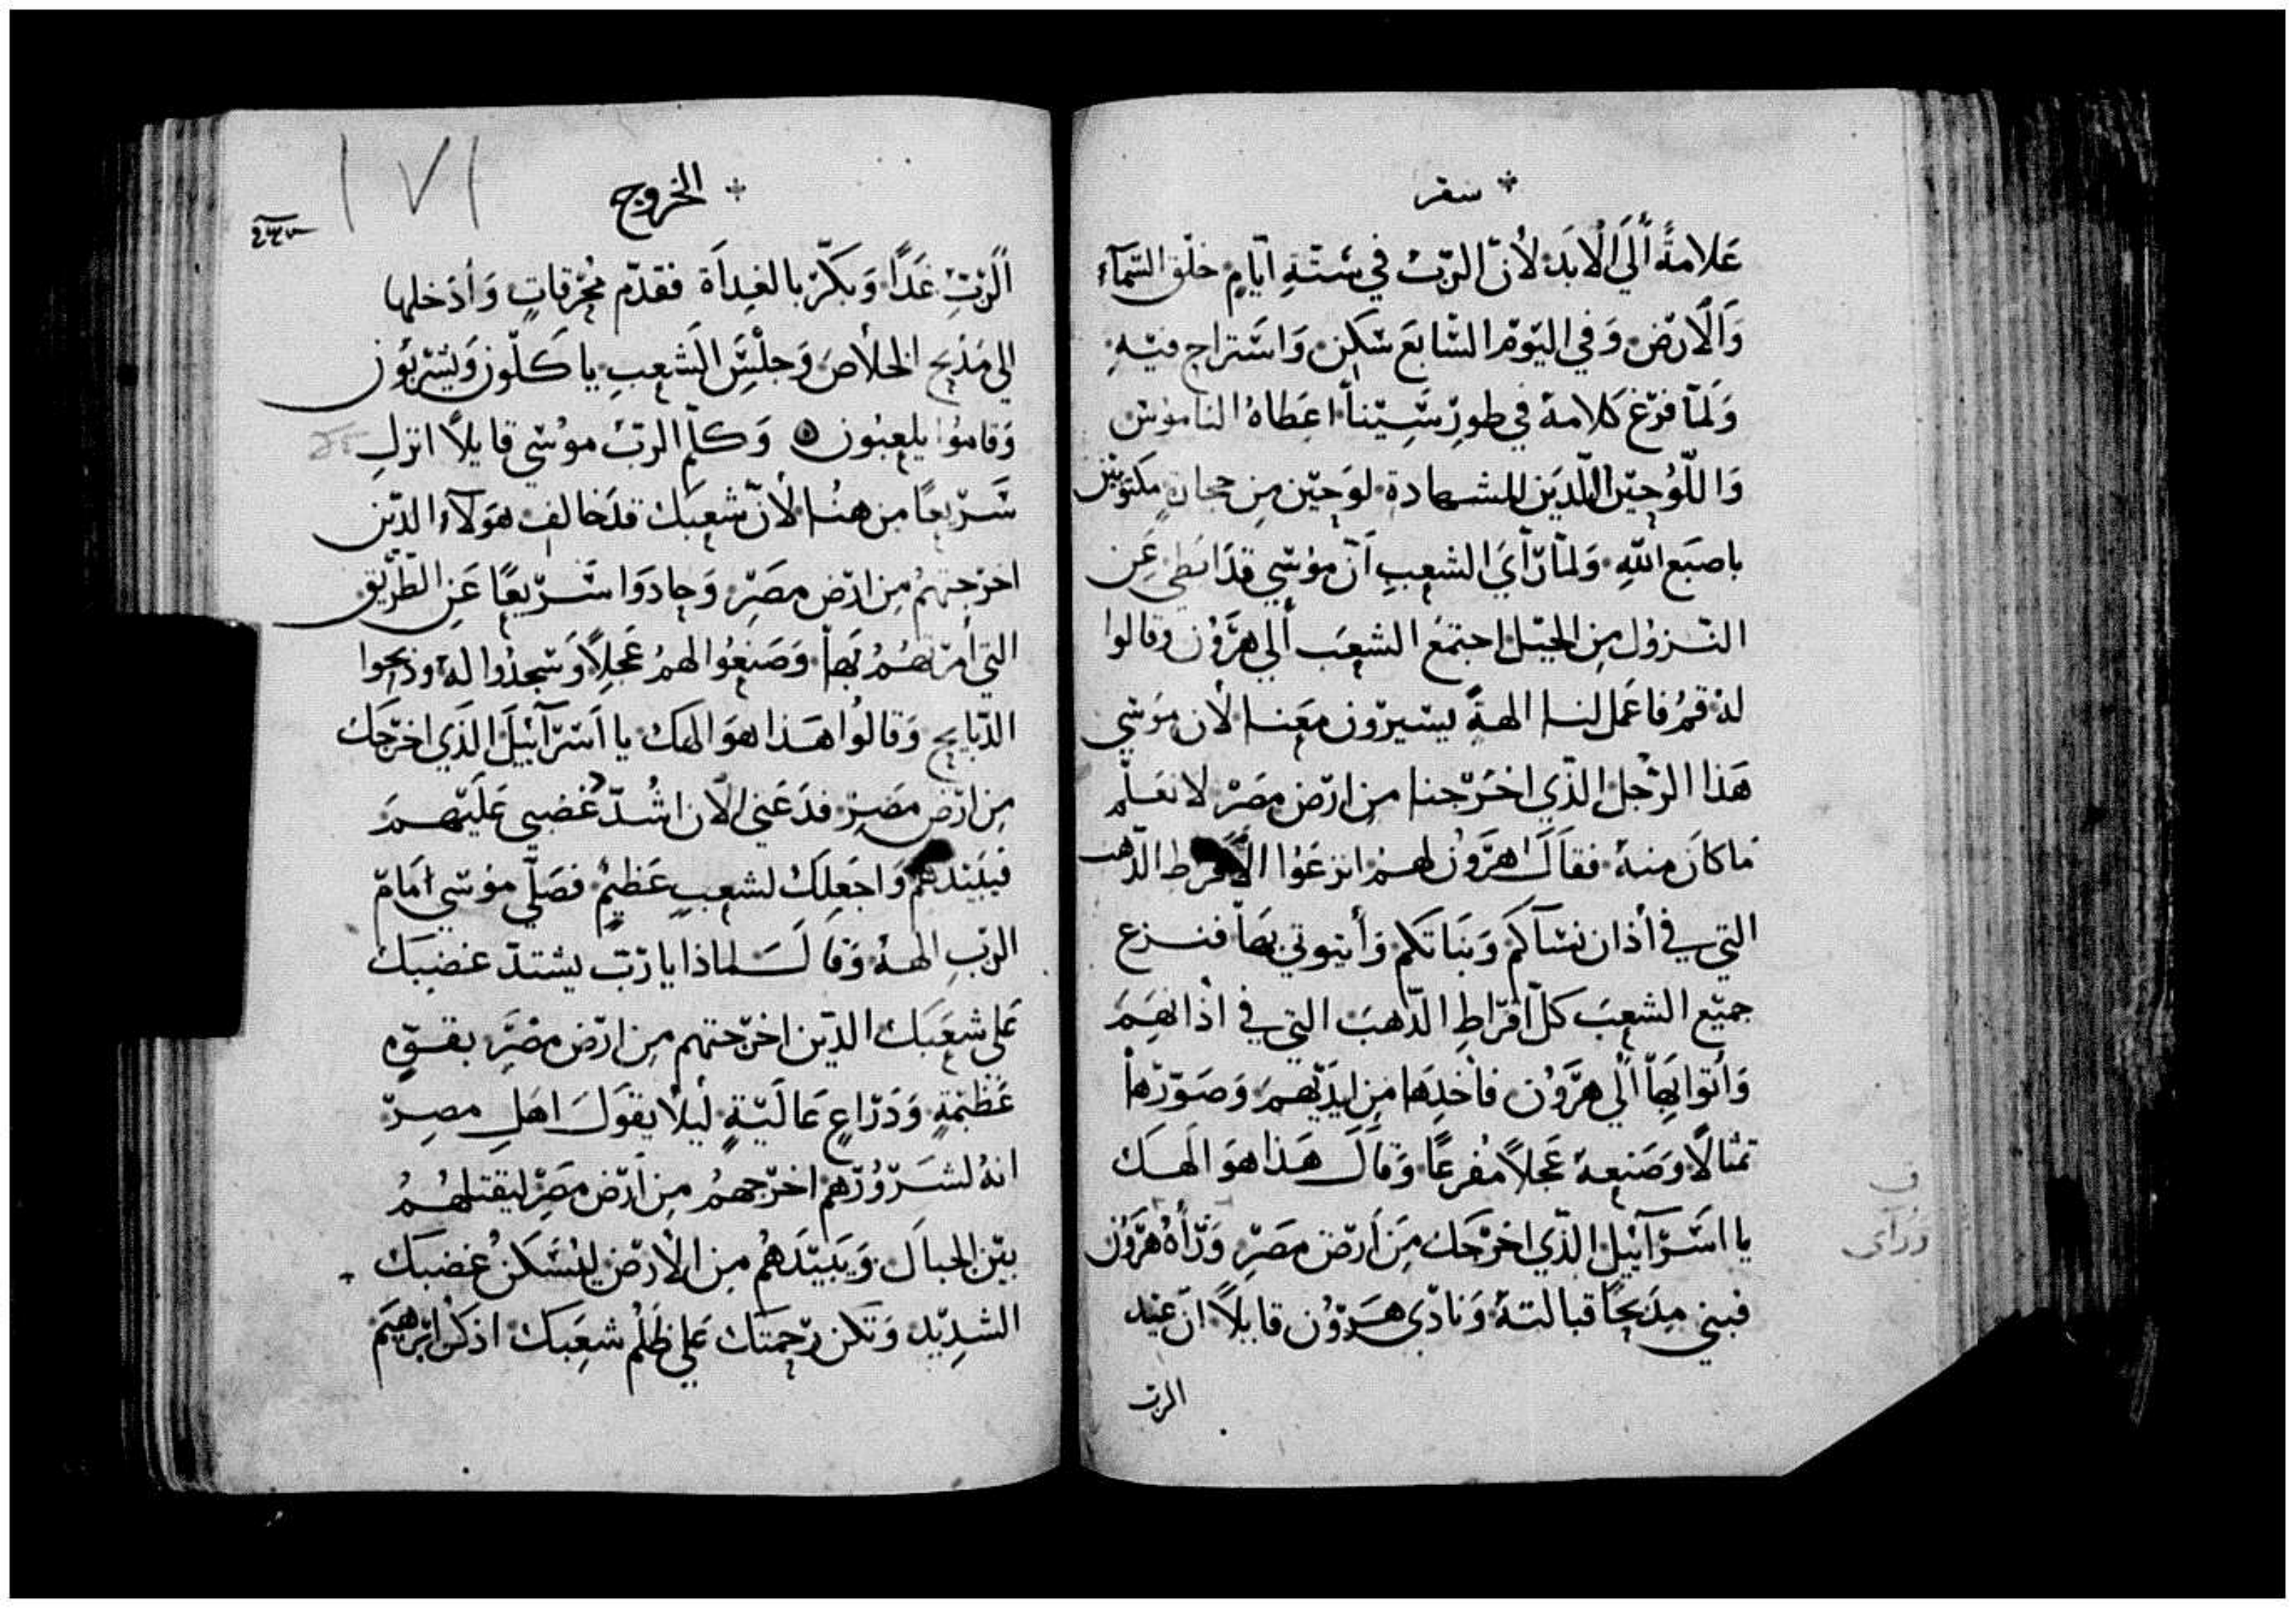 سفر
علامةً الي الابد لان الربّ في ستّةِ ايّامٍ خلق السّمآء
وَالارض وَفي اليَوم السّابعَ سَكن وَاستراح فيهِ
وَلمّا فرغ كلامهُ في طورِ سِينا اعطاهُ الناموس
وَاللّوحيَن اللّدَين للشهادة لوحين من حجارة مكتوبين
باصبَع اللهِ وَلمّا رَأيَ الشعبِ اَنّ موُسي قدَ ابطي عَن
النزول من الجبَل اجتمعَ الشعبَ ألي هرَوُن وقالوا
لهُ قمُ فاعَمل لنا الهةً يسيرون معَنا لأن موُسي
هَذا الرّجل الذّي اخرَجنا من ارض مصَر لا نعَلم
مَا كانَ منهُ فقالَ هرَوُن لهم انزعَوا الأقرط الذّهب
التي في أذان نسَآكم وَبَناتكم وَأيتوني بهَا فنزع
جميَع الشعبَ كلّ اقرَاطِ الذّهبَ التي في اذانهَم
وَأتوا بهَا الي هرَوُن فأخدهَا من ايديَهم وَصَوّرَها
تمثالًا وَصَنعهُ عَجلاً مُفرغاً وَقالَ هَذا هوَ الهَك
يا اسَرآئيل الذّي اخرَجَك مِن اَرض مصَرِ وَرَأهُ هرَوُن
فبني مدَبحًا قبالتهُ وَنادَي هَروُن قايلًا ان عيد
الرب
ف
ورأى
الخروج
١٧١
الرّبِّ غدًا وَبكّر بالغدَاة فقدّم مُحرقاتٍ وَأدَخلها
الي مَدبح الخلاص وَجلسَ الشعبِ ياكلّون وَيَشربَوُن
وَقاموُا يلعبوُن وَكلّم الربّ موُسي قايلًا انزل
سَريعًا من هنُا لأنّ شعبَك قدَ خالف هَولآء الدّين
اخرَجتهُم من ارض مصَرِ وَحادَوا سَريعًا عَن الطّريَق
التي أمرَتهُمُ بهَا وَصَنعُوا لهمُ عَجلًا وَسَجدُوا لهُ وذبحوا
الدّبايح وَقالوُا هَذا هوَ الهَك يا اسَرآئيلَ الذَي اخرَجَك
من ارض مصَر فدَعَني الآن اشُدّ غضبي عَلَيهمَ
فيَبيَدهمُ وَاجعلكَ لشعبٍ عَظيمٍ فصَلّي موُسي امَامَ
الربِّ الههُ وَقالَ لماذا يا رَبّ يشتدّ غضبَك
عَلي شعبَك الدّين اخرَجتهم من ارض مصَر بقوّهٍ
عَظيمَةٍ وَدَراعٍ عَاليَةٍ ليَلا يقوَلَ اهَل مصِر
انهُ لشرَورُهم اخرَجهمُ من اَرض مصَر ليقتلهُمُ
بيَن الجبالَ وَيَبيَدَهُم من الأرض ليُسَكَن غضبَك
الشدِيَد وَتكن رَحمتَك عَلي ظلُم شعبَك اذكر ابرَهيَم